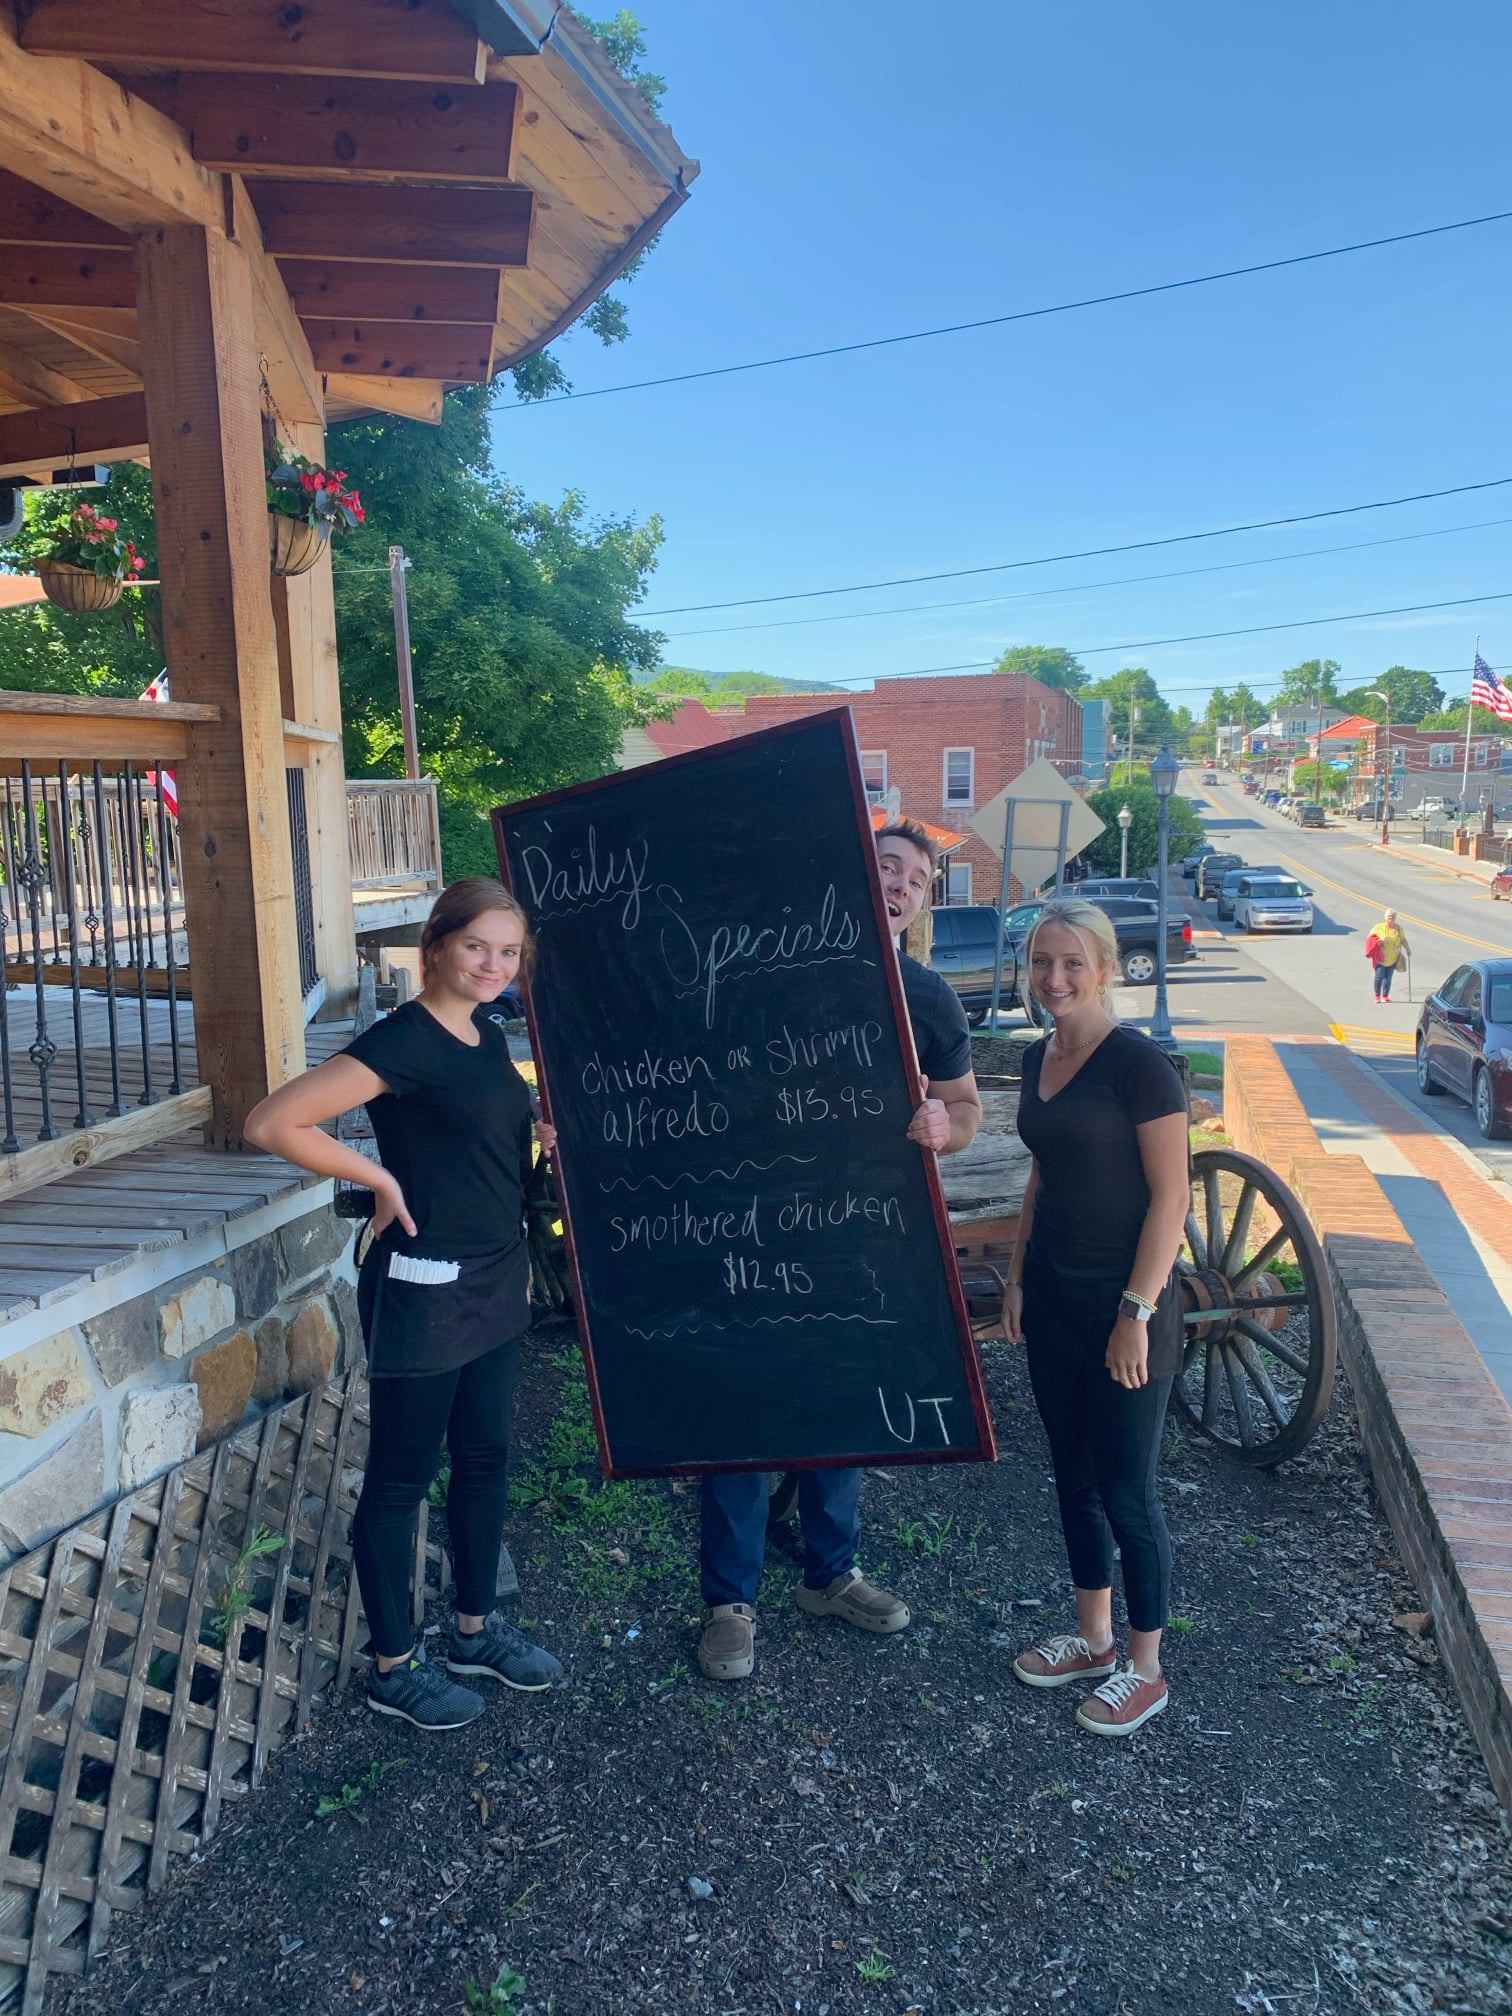 Daily
Specials
chicken OR shrimp
alfredo $13.95
smothered chicken
$12.95
UT